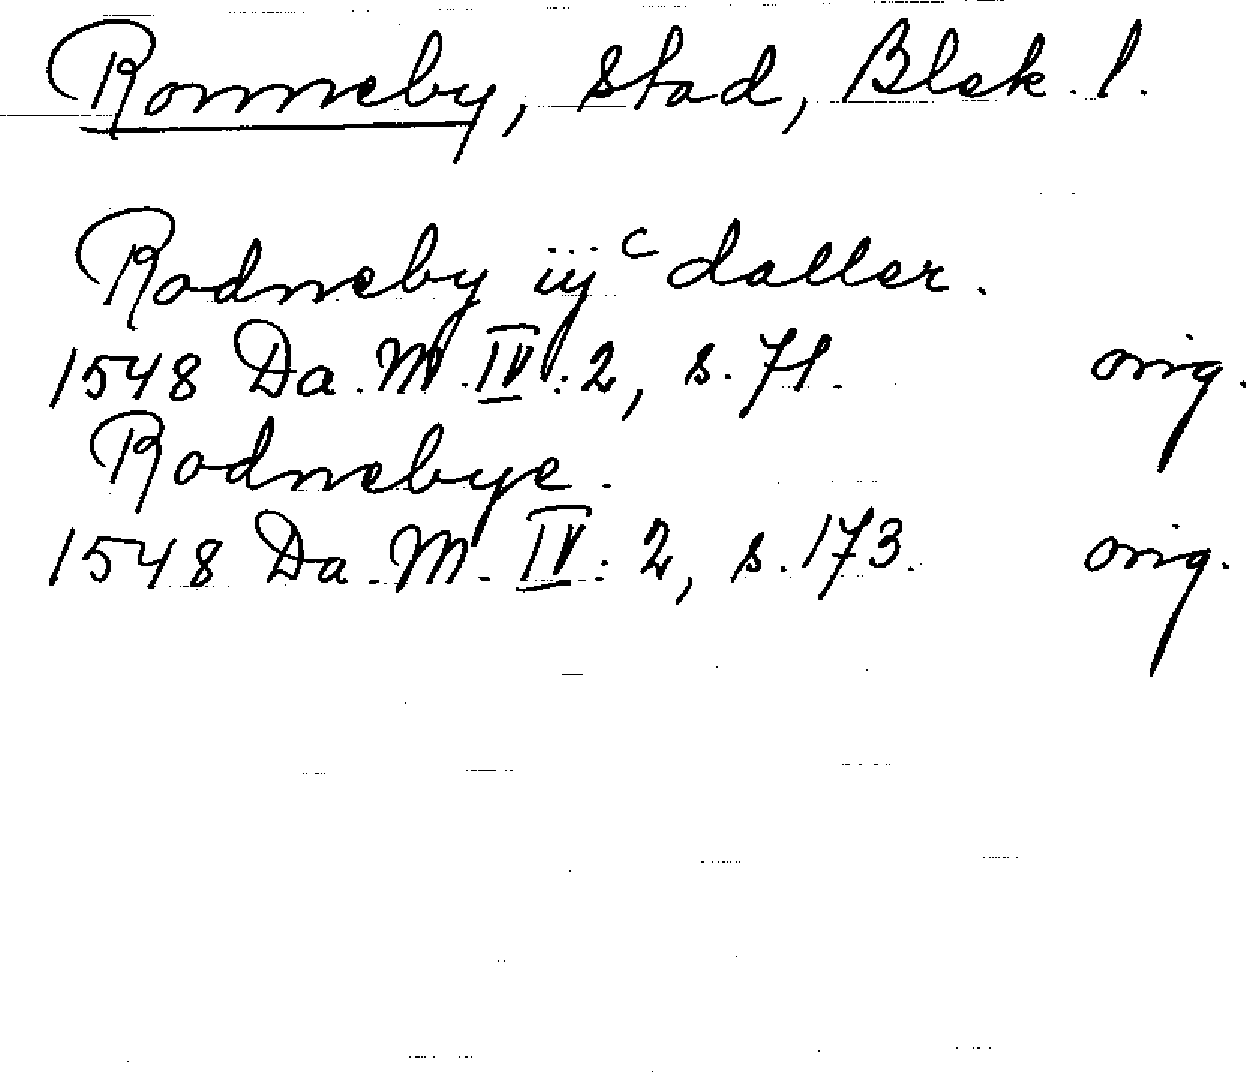 Ronneby, stad, Blek. l.
Rodneby iijᶜ daller.
1548 Da. M. IV. 2, s. 71. orig.
Rodnebye.
1548 Da. M. IV. 2, s. 173. orig.